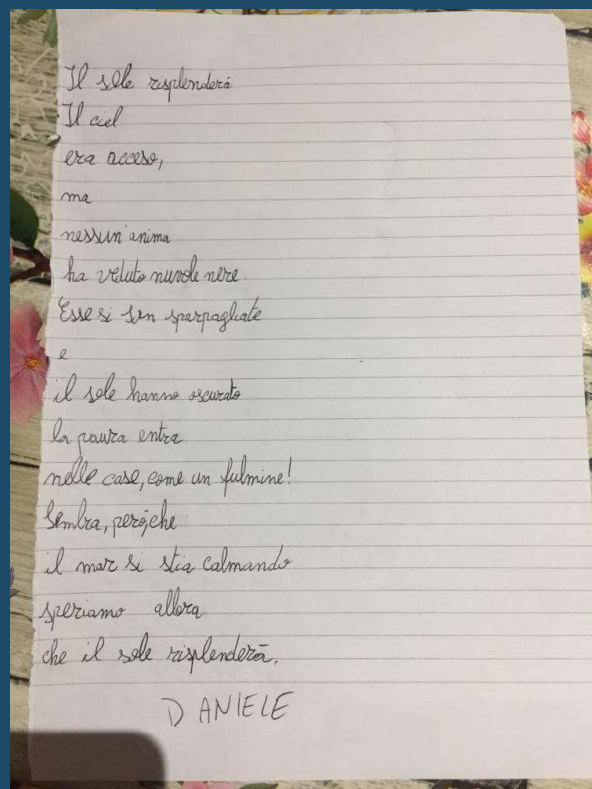 Il sole risplenderà
Il ciel
era acceso,
ma
nessun'anima
ha veduto nuvole nere.
Esse si son sparpagliate
e
il sole hanno oscurato
la paura entra
nelle case, come un fulmine!
Sembra, però, che
il mar si stia calmando
speriamo allora
che il sole risplenderà.
DANIELE